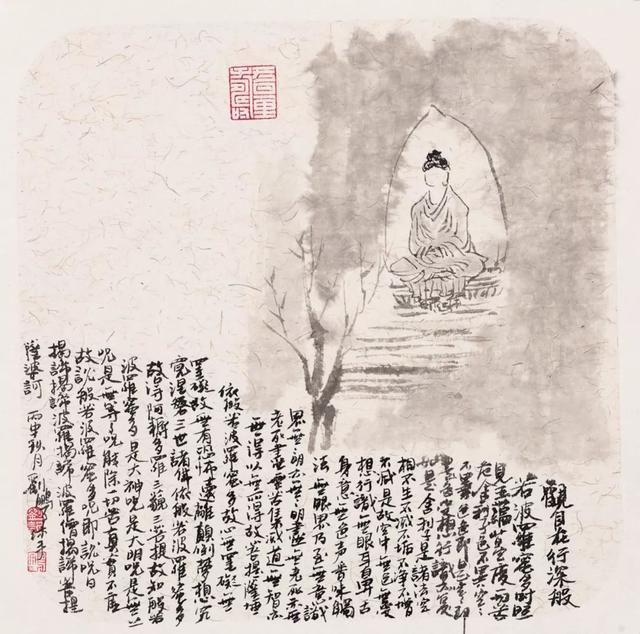 觀自在行深般
若波羅蜜多時照
見五蘊皆空度一切苦
厄舍利子色不異空空
不異色色即是空空即
是色受想行識亦復
如是舍利子是諸法空
相不生不滅不垢不淨不增
不減是故空中無色無受
想行識無眼耳鼻舌
身意無色聲香味觸
法無眼界乃至無意識
界無明亦無無明盡無老死亦無
老死盡無苦集滅道無智亦
無得以無所得故菩提薩埵
依般若波羅蜜多故心無罣礙無
罣礙故無有恐怖遠離顛倒夢想究
竟涅槃三世諸佛依般若波羅蜜多
故得阿耨多羅三藐三菩提故知般若
波羅蜜多是大神呪是大明呪是無上
呪是無等等呪能除一切苦真實不虛
故說般若波羅蜜多呪即說呪曰
揭諦揭諦波羅揭諦波羅僧揭諦菩提
薩婆訶 丙申秋月 劉